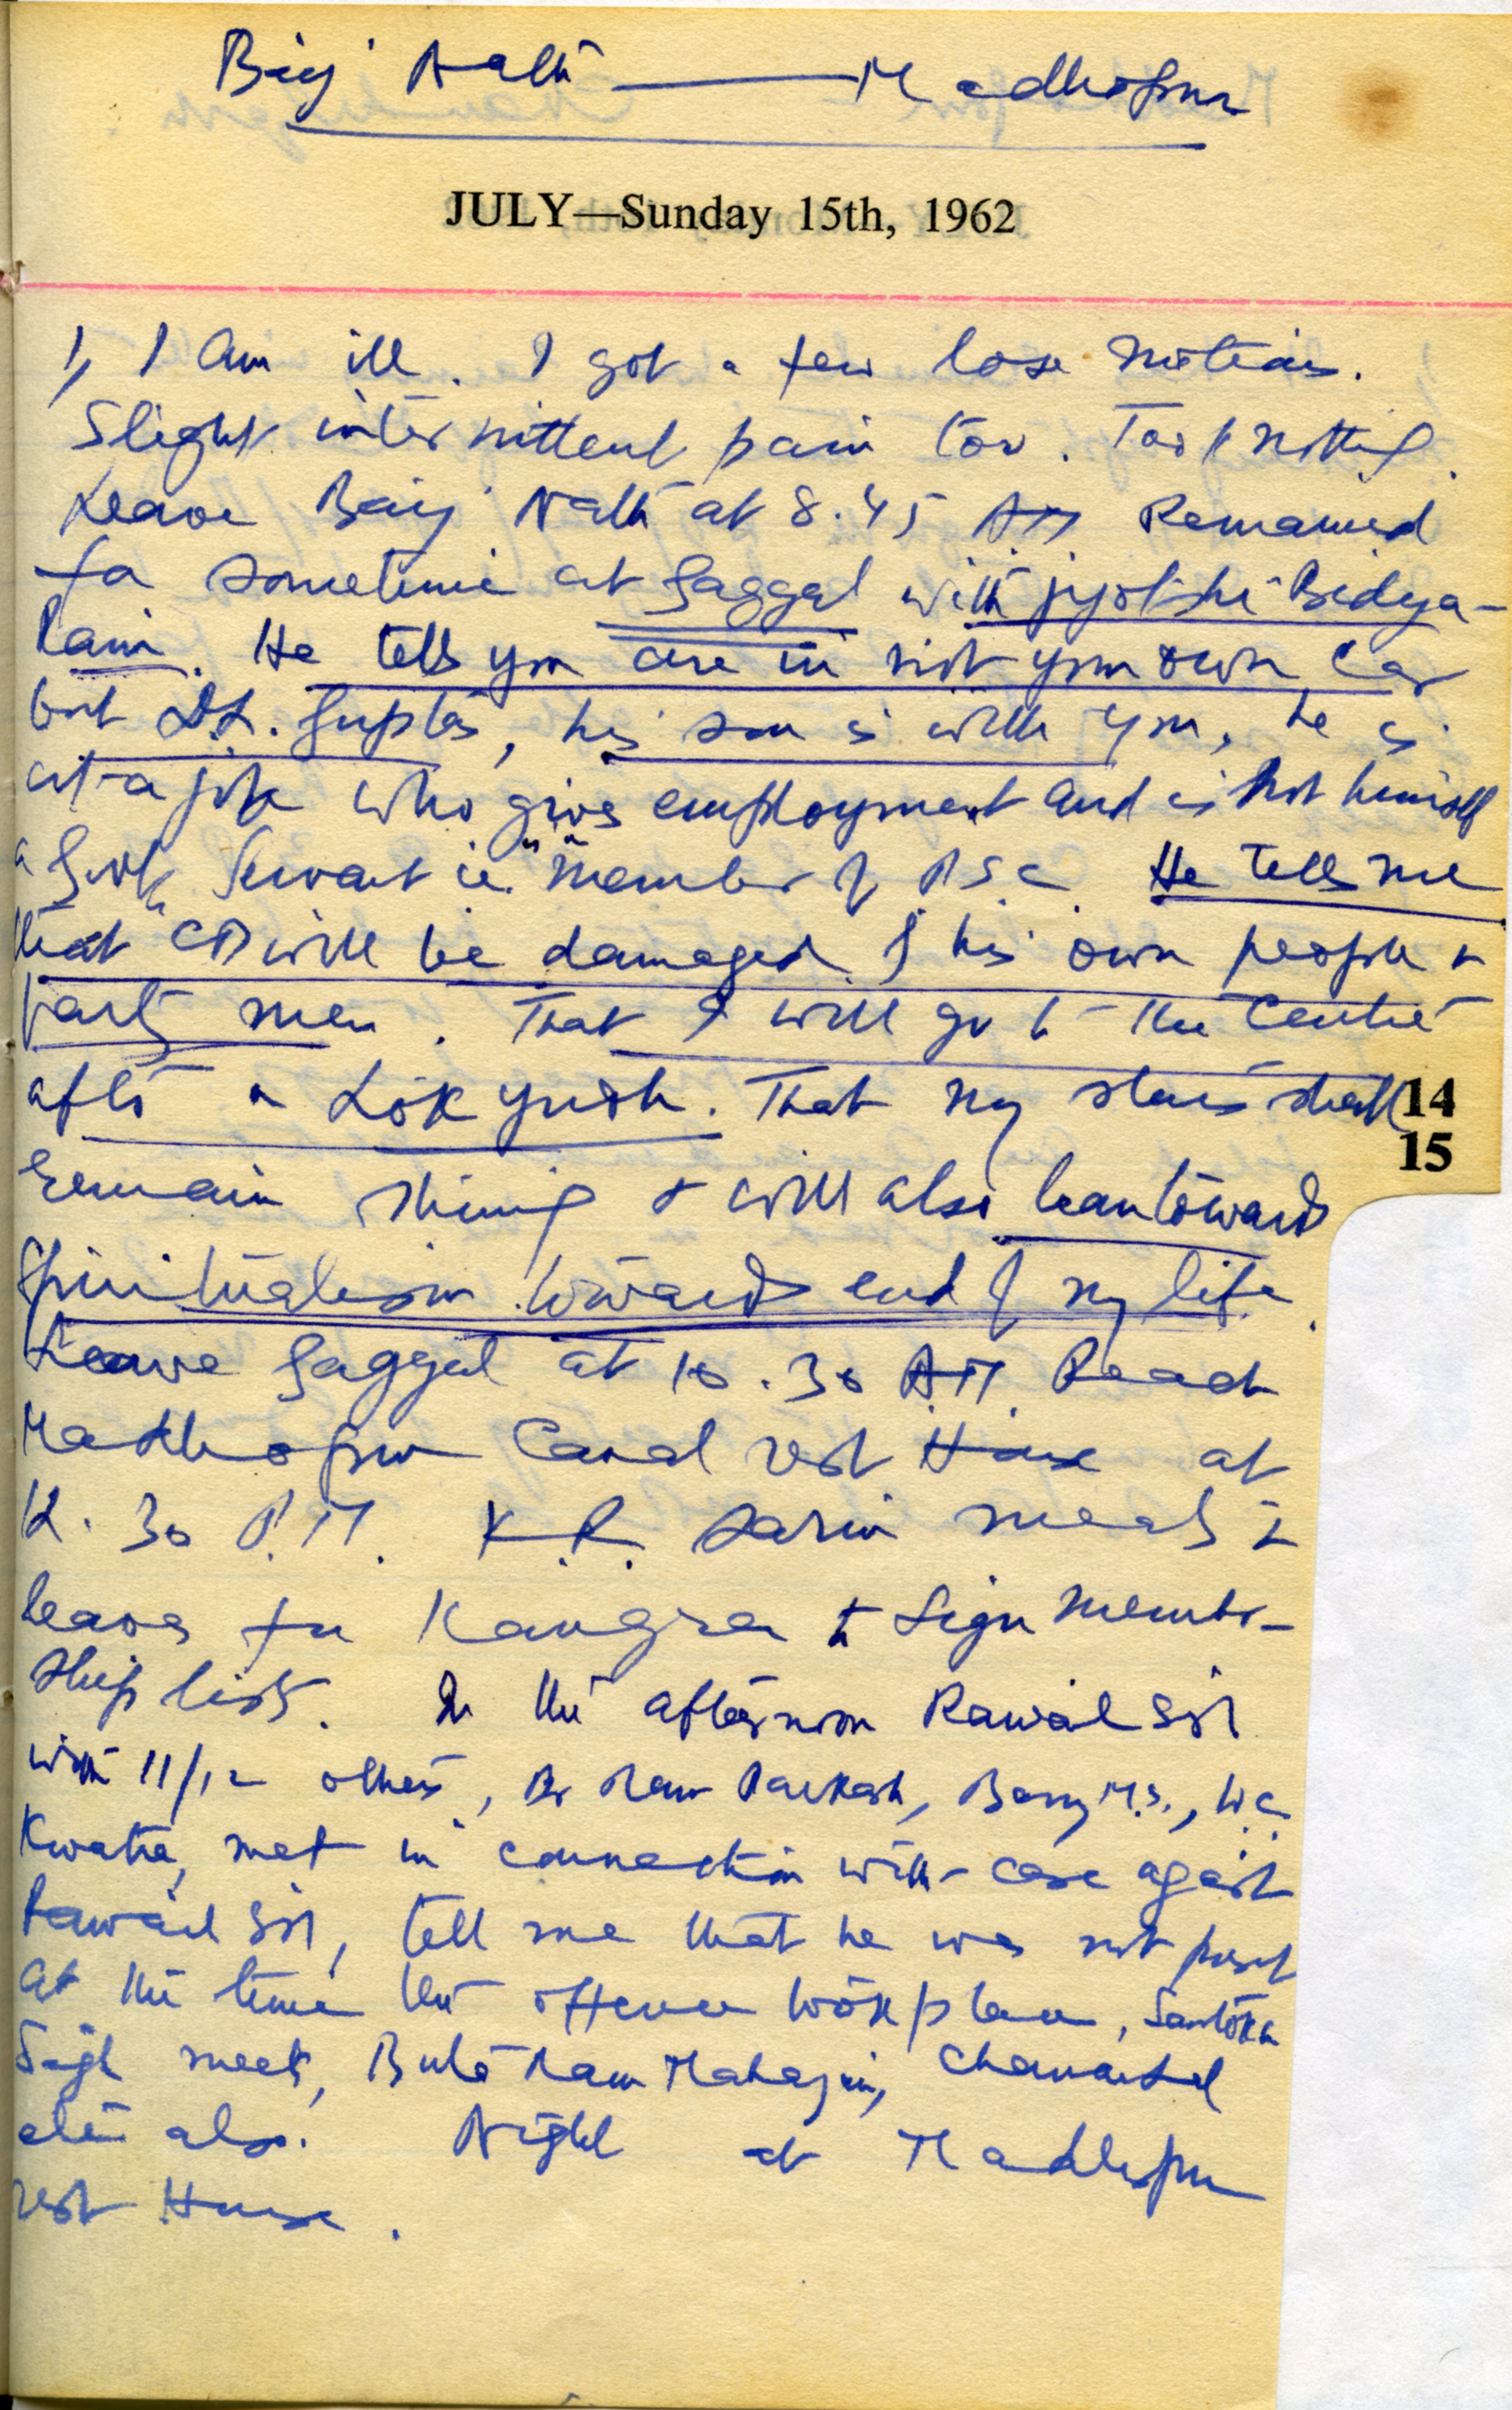 Baij Nath — Madhopur
JULY—Sunday 15th, 1962
1, I am ill. I got a few lose motions.
Slight intermittent pain too. Took nothing.
Leave Baij Nath at 8.45 AM Remained
for sometime at Gaggal with jyotshi Bidya-
Ram. He tells you are in not your own car
but D.L. Gupta's, his son is with you, he is
at a job who gives employment and is not himself
a Govt Servant ie. "member of P.S.C". He tells me
that "CM will be damaged by his own people &
party men. That I will go to the Centre
after a Lok yudh. That my stars shall
14
15
remain shining & will also lean towards
Spiritualism towards end of my life.
Leave Gaggal at 10.30 AM. Reach
Madhopur Canal rest House at
12.30 P.M. K.R. Sarin meets &
leaves for Kangra to sign member-
ship lists. In the afternoon Rawail
with 11/12 others, Dr Ram Parkash, Berry M.S.,
Kwatra, met in connection with case against
Rawail, tell me that he was not present
at the time the offence took place, Santokh
Singh meets, Ram Mahajan,
etc also. Night at Madhopur
rest House.